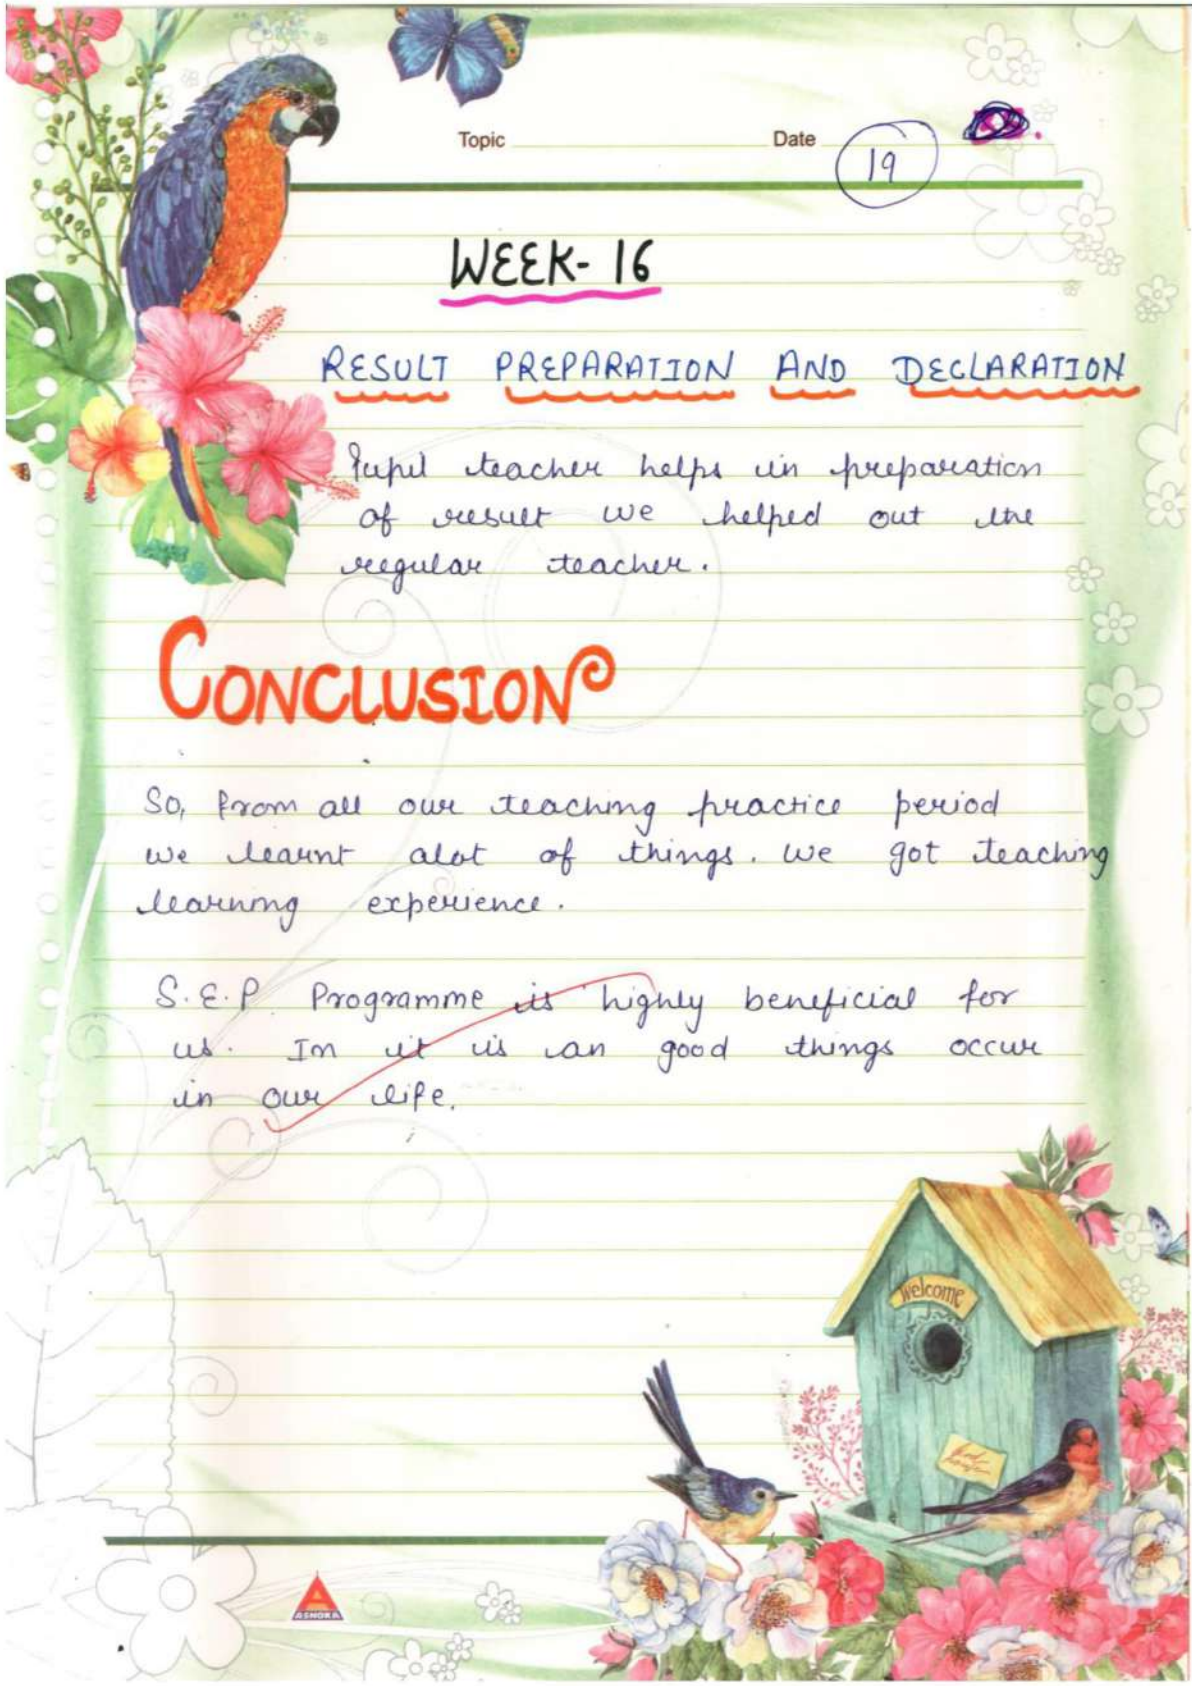 Topic
Date
19
WEEK- 16
RESULT PREPARATION AND DECLARATION
Pupil teacher helps in preparation
of result we helped out the
regular teacher.
CONCLUSION
So, from all our teaching practice period
we learnt alot of things. We got teaching
learning experience.
S.E.P Programme is highly beneficial for
us. In it is an good things occur
in our life.
Welcome
ASHOKA